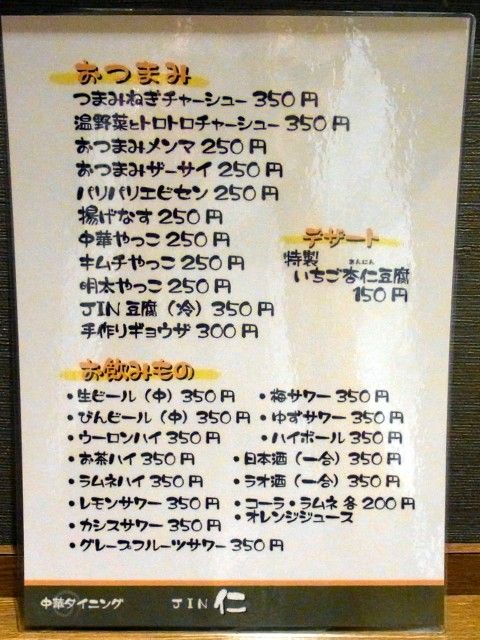 おつまみ
つまみねぎチャーシュー 350円
温野菜とトロトロチャーシュー 350円
おつまみメンマ 250円
おつまみザーサイ 250円
パリパリエビセン 250円
揚げなす 250円
中華やっこ 250円
キムチやっこ 250円
明太やっこ 250円
JIN豆腐（冷） 350円
手作りギョウザ 300円
デザート
特製 あんにん
いちご杏仁豆腐
150円
お飲みもの
・生ビール（中）350円
・びんビール（中）350円
・ウーロンハイ 350円
・お茶ハイ 350円
・ラムネハイ 350円
・レモンサワー 350円
・カシスサワー 350円
・グレープフルーツサワー 350円
・梅サワー 350円
・ゆずサワー 350円
・ハイボール 350円
・日本酒（一合）350円
・ラオ酒（一合）350円
・コーラ・ラムネ 各200円
・オレンジジュース
中華ダイニング JIN 仁